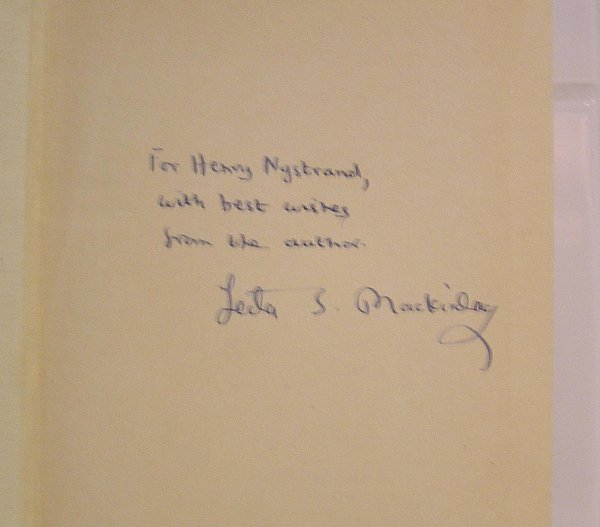 For Henry Nystrand,
with best wishes
from the author.
Leita S. Mackinlay